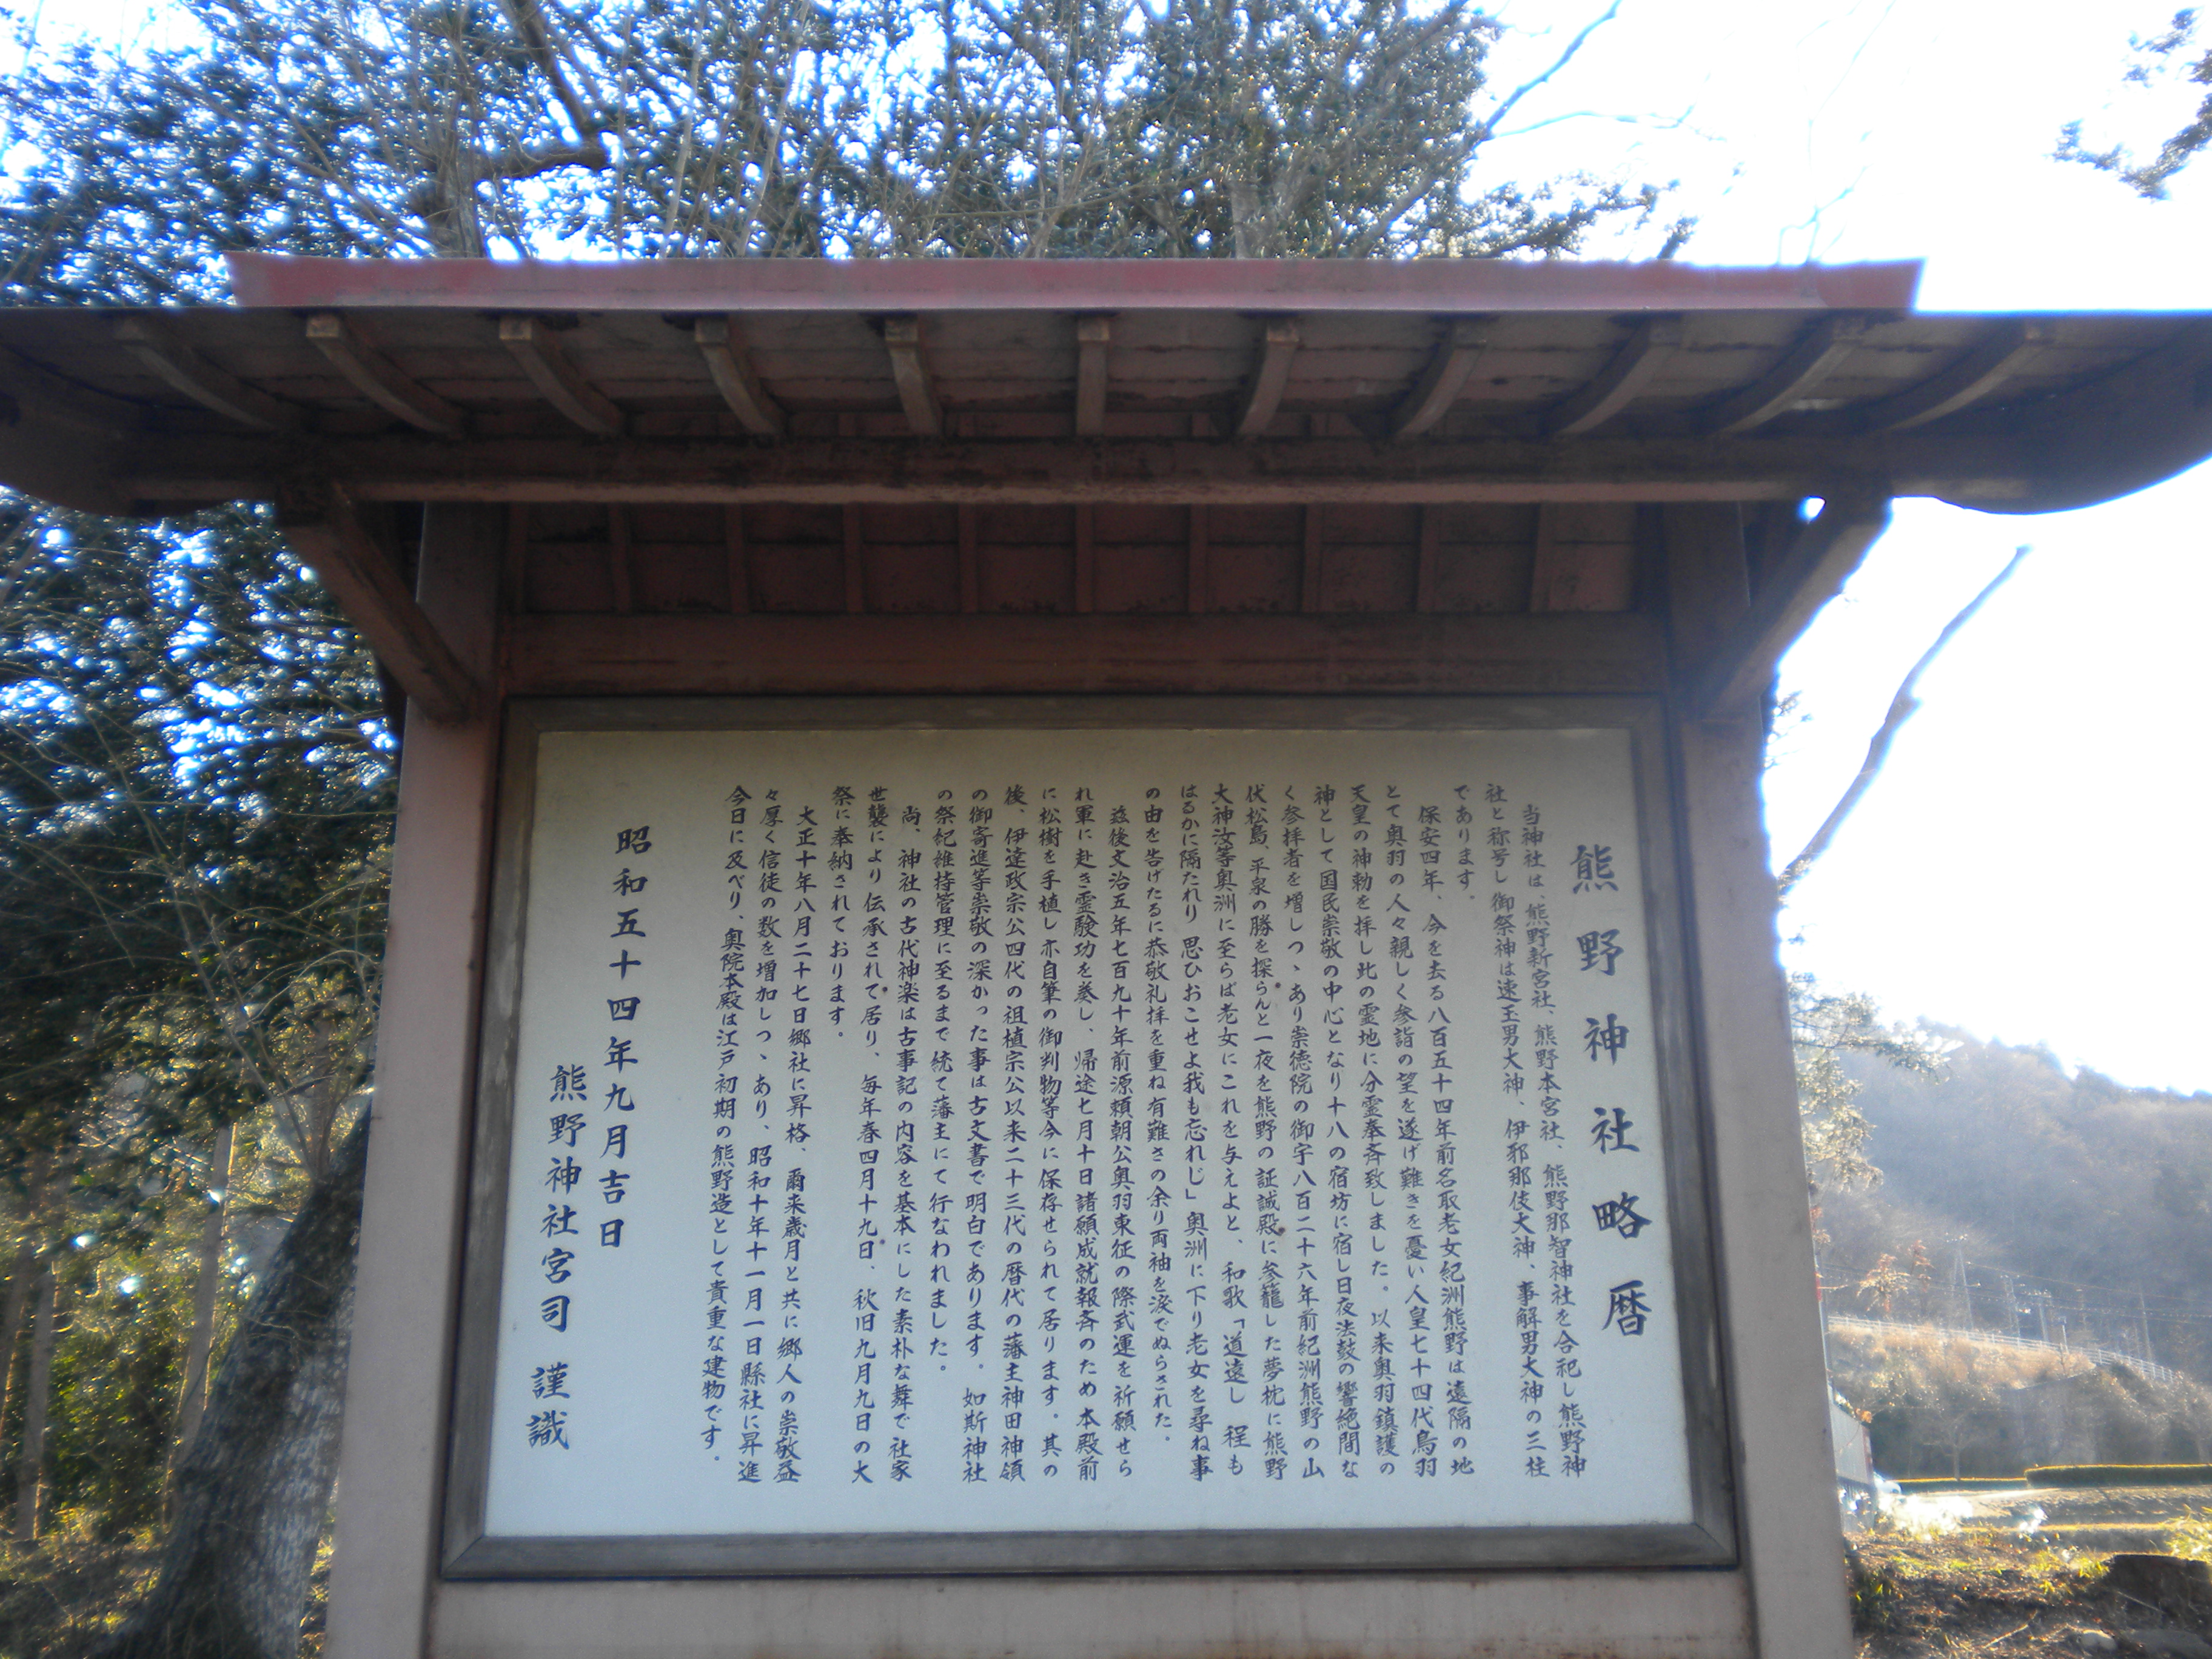 熊野神社略暦
当神社は、熊野新宮社、熊野本宮社、熊野那智神社を合祀し熊野神
社と称号し御祭神は速玉男大神、伊邪那伎大神、事解男大神の三柱
であります。
保安四年、今を去る八百五十四年前名取老女紀洲熊野は遠隔の地
とて奥羽の人々親しく参詣の望を遂げ難きを憂い人皇七十四代鳥羽
天皇の神勅を拝し此の霊地に分霊奉斉致しました。以来奥羽鎮護の
神として国民崇敬の中心となり十八の宿坊に宿し日夜法鼓の響絶間な
く参拝者を増しつゝあり崇徳院の御宇八百二十六年前紀洲熊野の山
伏松島、平泉の勝を探らんと一夜を熊野の証誠殿に参籠した夢枕に熊野
大神汝等奥洲に至らば老女にこれを与えよと、和歌「道遠し 程も
はるかに隔たれり 思ひおこせよ我も忘れじ」奥洲に下り老女を尋ね事
の由を告げたるに恭敬礼拝を重ね有難さの余り両袖を涙でぬらされた。
玆後文治五年七百九十年前源頼朝公奥羽東征の際武運を祈願せら
れ軍に赴き霊験功を奏し、帰途七月十日諸願成就報斉のため本殿前
に松樹を手植し亦自筆の御判物等今に保存せられて居ります。其の
後、伊達政宗公四代の祖植宗公以来二十三代の暦代の藩主神田神領
の御寄進等崇敬の深かった事は古文書で明白であります。如斯神社
の祭紀維持管理に至るまで統て藩主にて行なわれました。
尚、神社の古代神楽は古事記の内容を基本にした素朴な舞で社家
世襲により伝承されて居り、毎年春四月十九日、秋旧九月九日の大
祭に奉納されております。
大正十年八月二十七日郷社に昇格、爾来歳月と共に郷人の崇敬益
々厚く信徒の数を増加しつゝあり、昭和十年十一月一日縣社に昇進
今日に及べり、奥院本殿は江戸初期の熊野造として貴重な建物です。
昭和五十四年九月吉日
熊野神社宮司 謹識